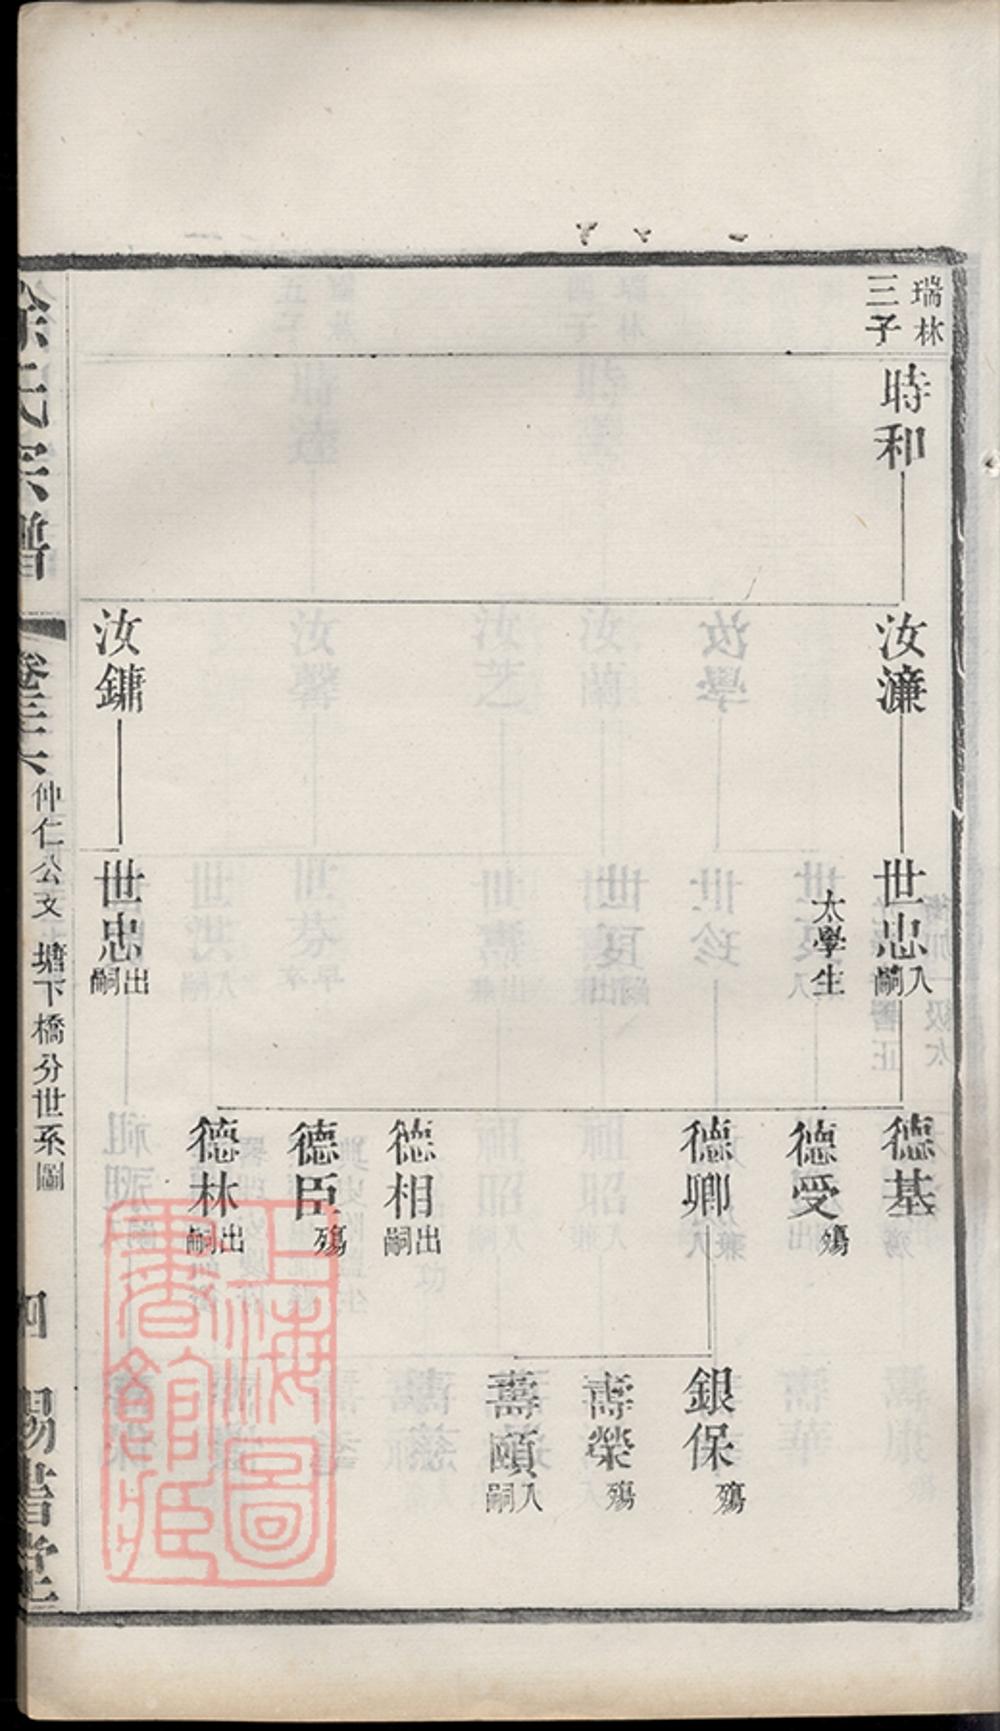 瑞林
三子
時和
汝濂
汝鏞
世忠
入嗣
太學生
世忠
出嗣
德基
德受
殤
德卿
德相
出嗣
德臣
殤
德林
出嗣
銀保
殤
壽榮
殤
壽頤
入嗣
徐氏宗譜
卷三六
仲仁公支 塘下橋分世系圖
四
錫書堂
上海圖書館藏